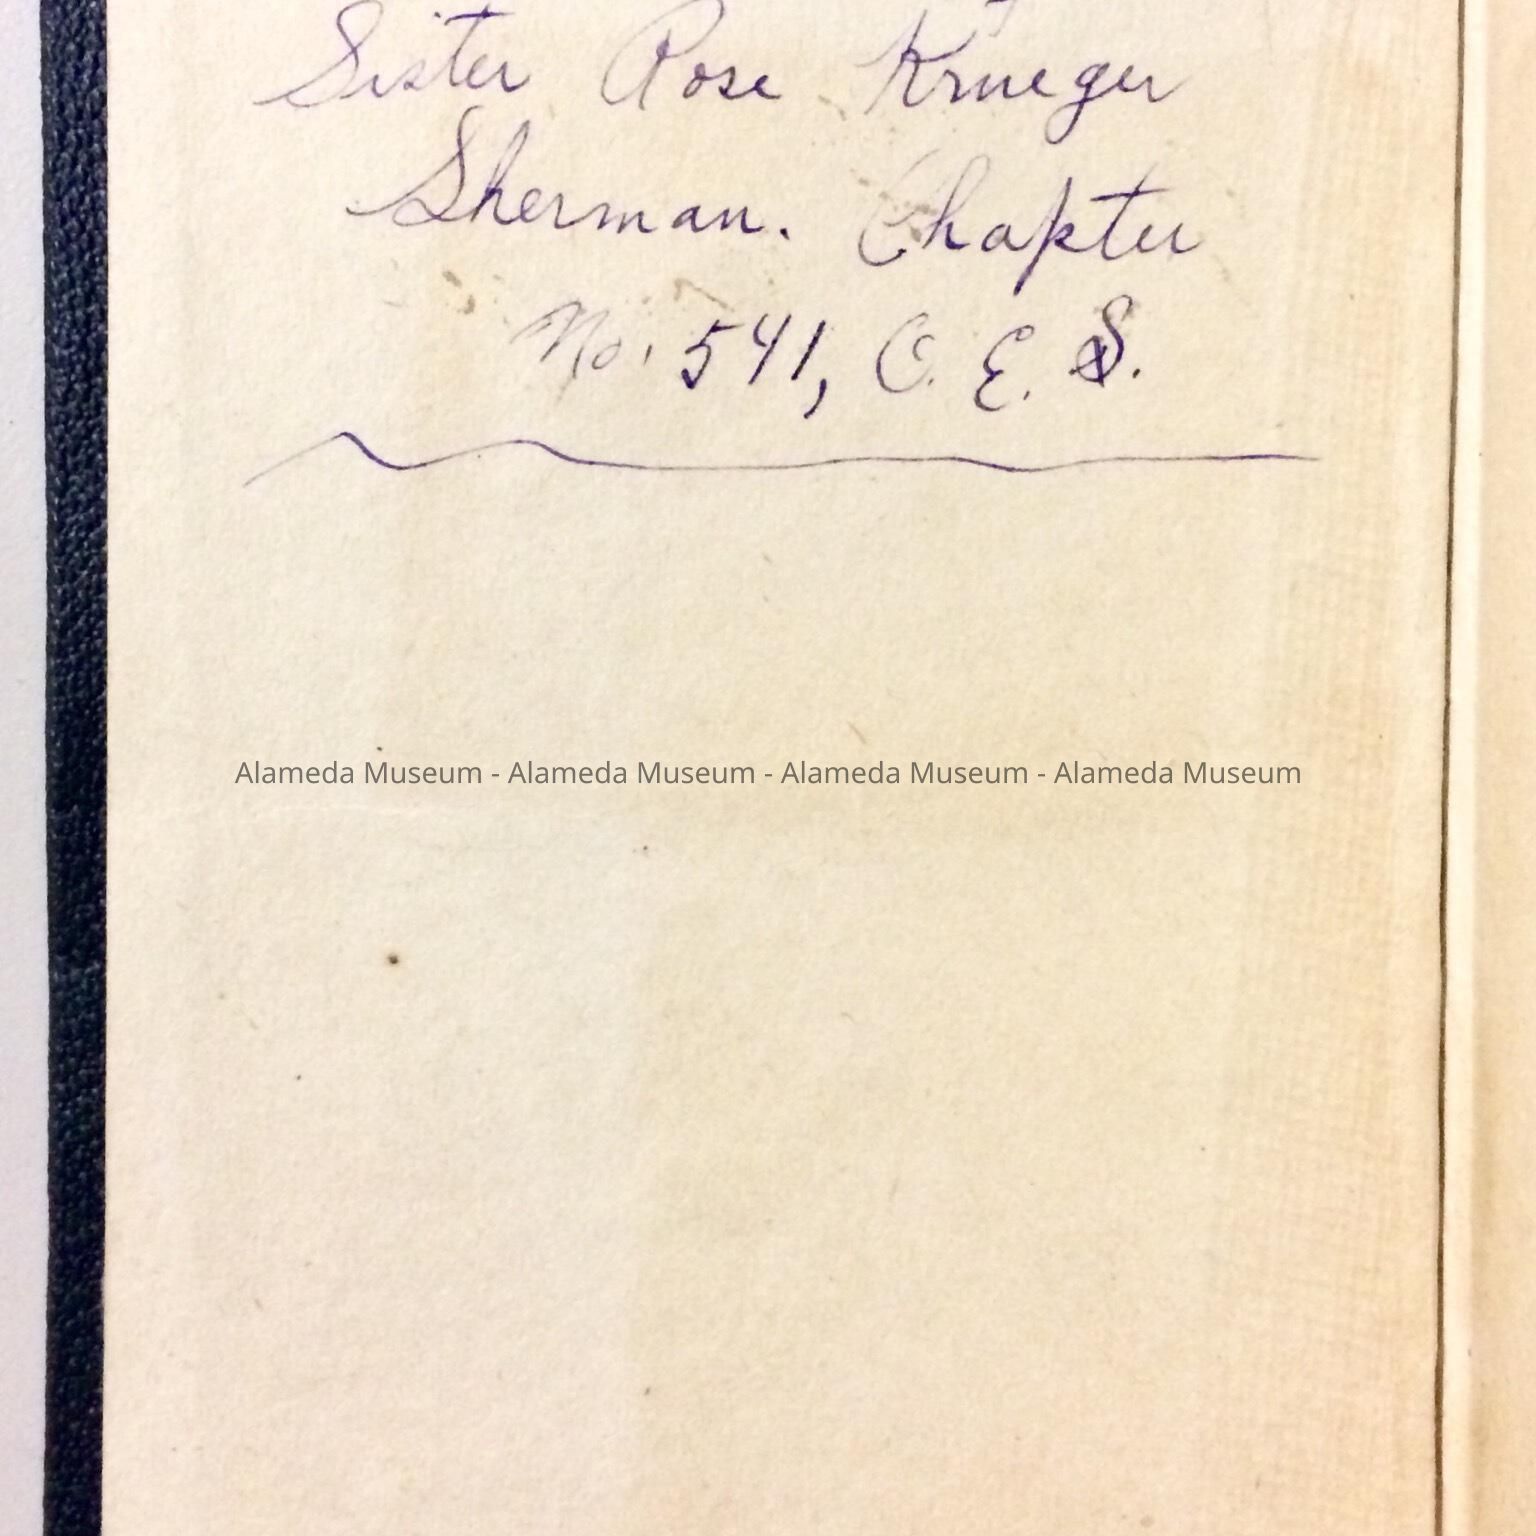 Sister Rose Krueger
Sherman. Chapter
No. 541, O. E. S.
Alameda Museum - Alameda Museum - Alameda Museum - Alameda Museum